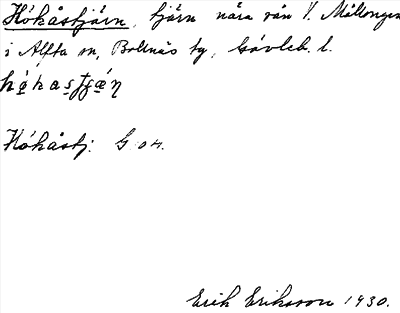 Hökåstjärn, tjärn nära rån V. Mållongen
i Alfta sn, Bollnäs tg, Gävleb. l.
Hökåstj: G. 04.
Erik Eriksson 1930.